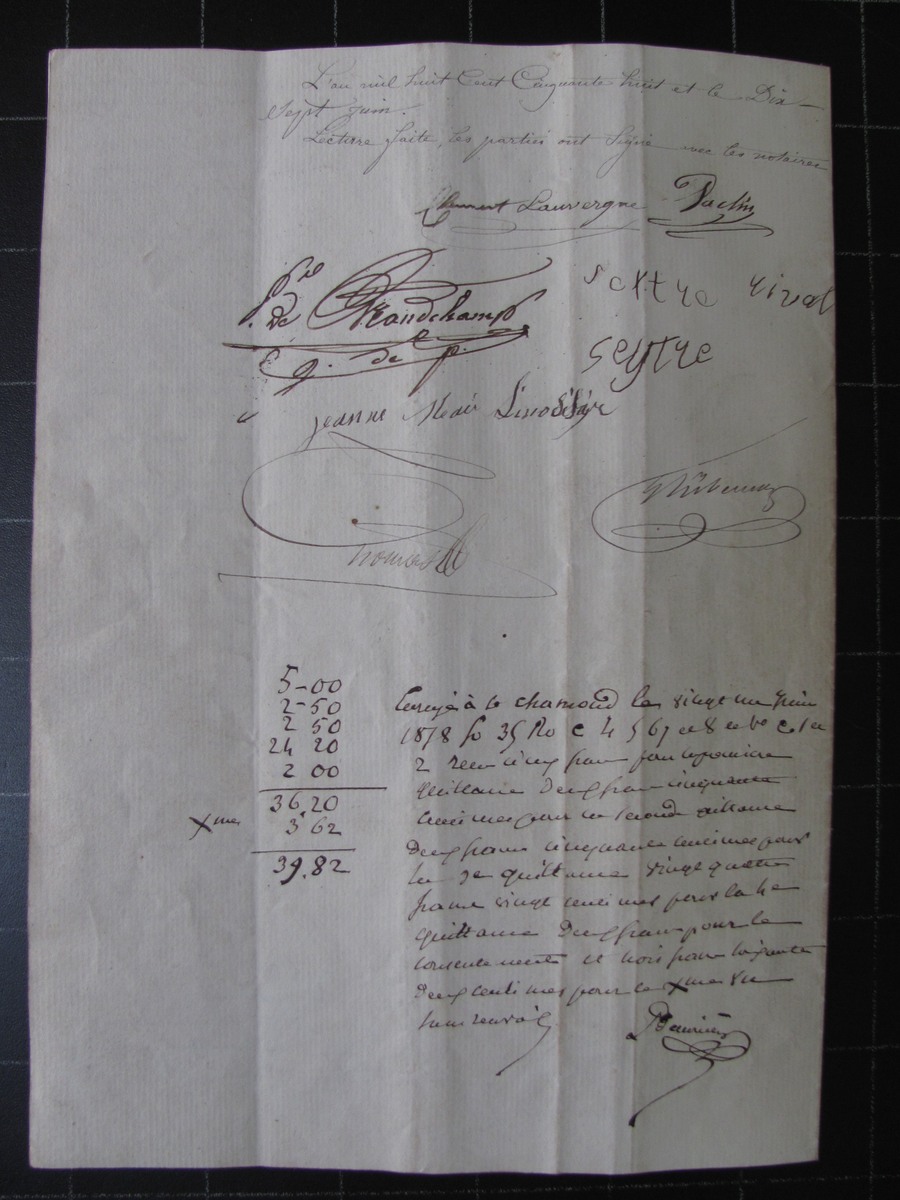 L'an mil huit Cent Cinquante huit et le Dix
Sept juin.
Lecture faite, les parties ont Signé avec les notaires
Clement Lauvergne
de Grandchamp
g. de p.
seytre rival
seytre
jeanne
thomas
5-00
2-50
2 50
24 20
2 00
36.20
Xmes 3 62
39.82
à St chamond le vingt un juin
1858 fo 35 Ro C 4 5 6 7 et 8 et Vo C 1 et
2 reçu cinq francs pour la première
quittance Deux francs cinquante
centimes pour la seconde quittance
Deux francs cinquante centimes pour
la 3e quittance vingt quatre
francs vingt centimes pour la 4e
quittance Deux francs pour le
consentement et trois francs soixante
Deux centimes pour le Xme
sans renvois